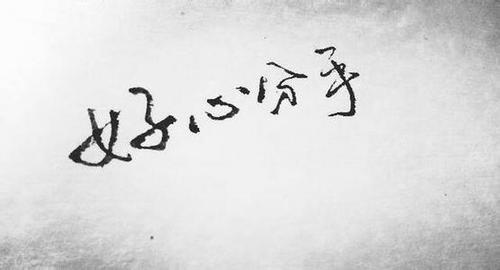 好心分手